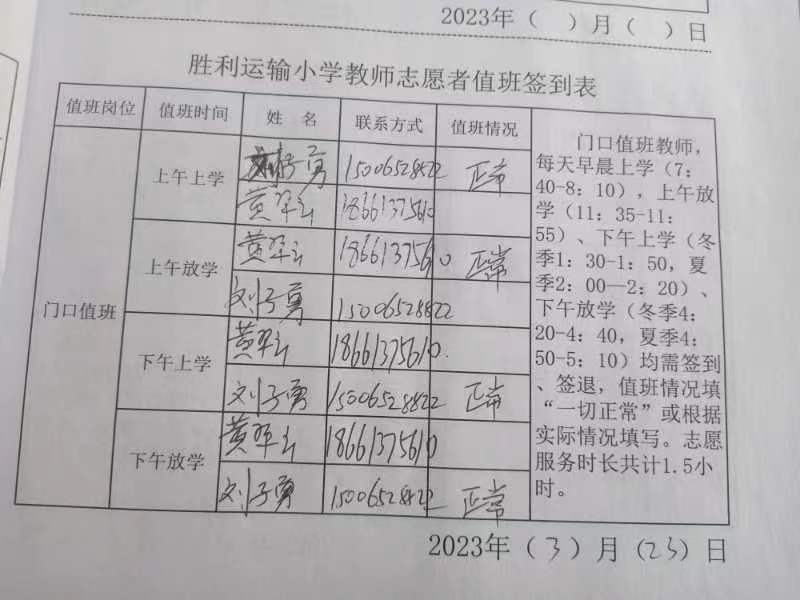 2023年（ ）月（ ）日
胜利运输小学教师志愿者值班签到表
值班岗位 值班时间 姓 名 联系方式 值班情况
门口值班
上午上学 刘子勇 15006528822 正常
黄翠云 18661375610
上午放学 黄翠云 18661375610 正常
刘子勇 15006528822
下午上学 黄翠云 18661375610
刘子勇 15006528822 正常
下午放学 黄翠云 18661375610
刘子勇 15006528822 正常
门口值班教师，
每天早晨上学（7：
40-8：10），上午放
学（11：35-11：
55）、下午上学（冬
季1：30-1：50，夏
季2：00—2：20）、
下午放学（冬季4：
20-4：40，夏季4：
50-5：10）均需签到
、签退，值班情况填
“一切正常”或根据
实际情况填写。志愿
服务时长共计1.5小
时。
2023年（3）月（23）日